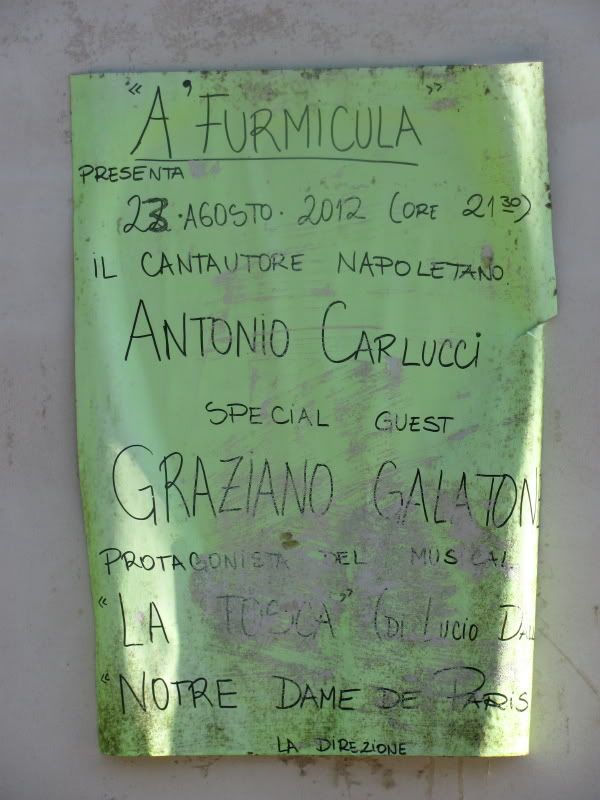 "A' FURMICULA"
PRESENTA
23·AGOSTO·2012 (ORE 21³⁰)
IL CANTAUTORE NAPOLETANO
ANTONIO CARLUCCI
SPECIAL GUEST
GRAZIANO GALATONE
PROTAGONISTA DEL MUSICAL
"LA TOSCA" (DI LUCIO DALL
"NOTRE DAME DE PARIS
LA DIREZIONE